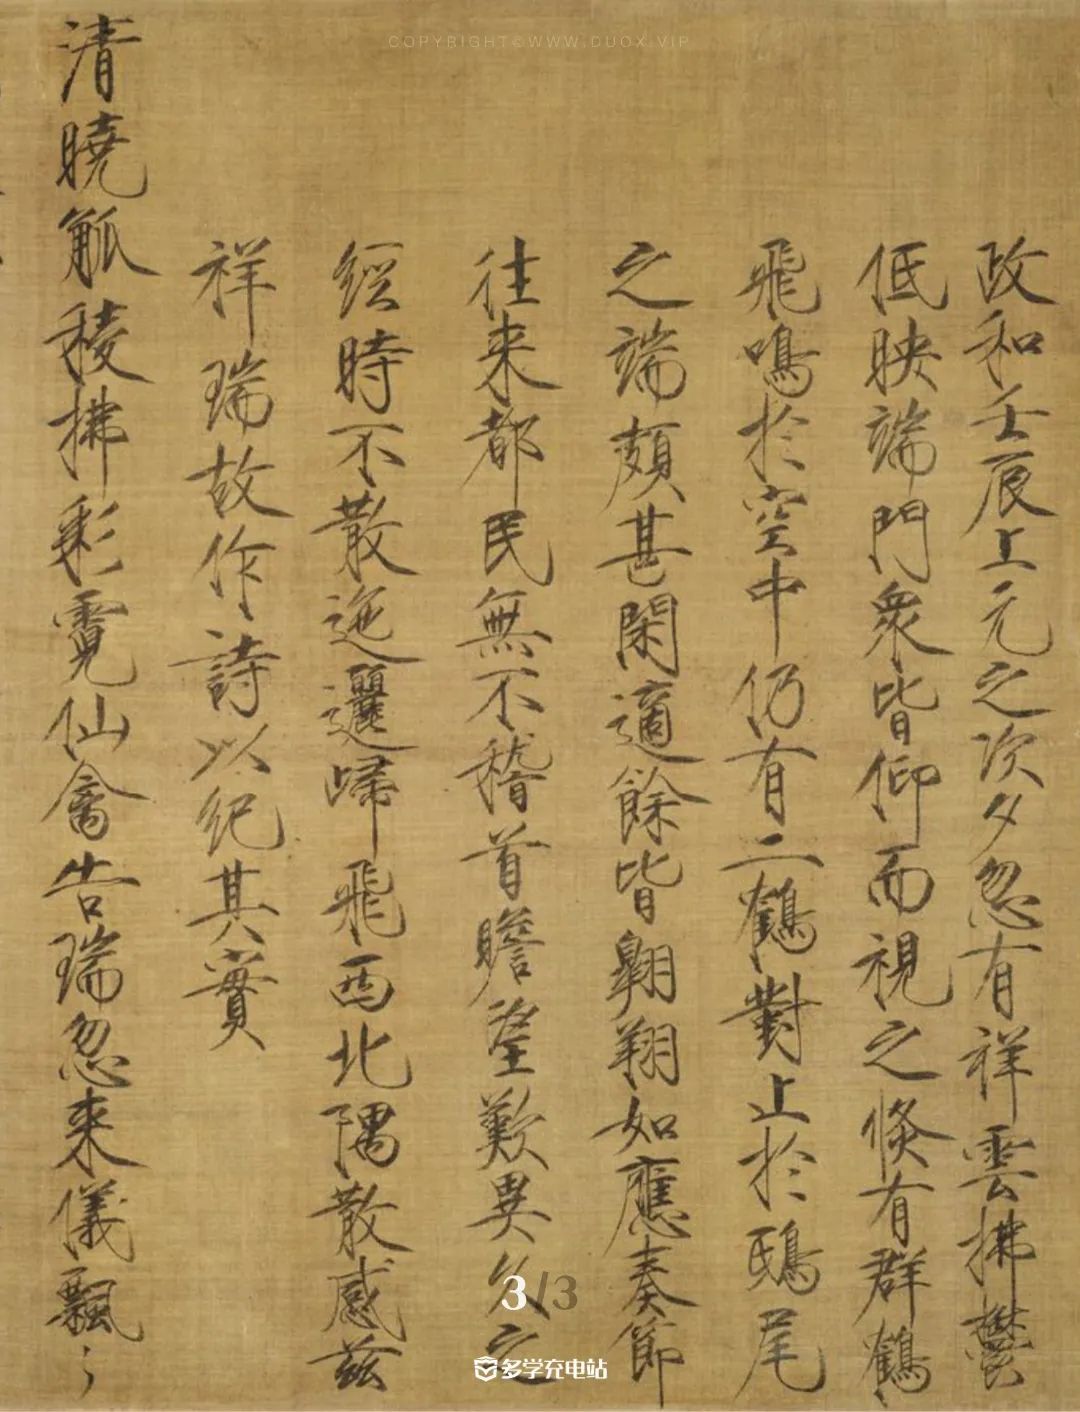 COPYRIGHT©WWW.DUOX.VIP
政和壬辰上元之次夕忽有祥雲拂鬱
低映端門衆皆仰而視之倏有群鶴
飛鳴於空中仍有二鶴對止於鴟尾
之端頗甚閑適餘皆翱翔如應奏節
往来都民無不稽首瞻望歎異久之
經時不散迤邐歸飛西北隅散感兹
祥瑞故作詩以紀其實
清曉觚稜拂彩霓仙禽告瑞忽来儀飄〻
3/3
多学充电站